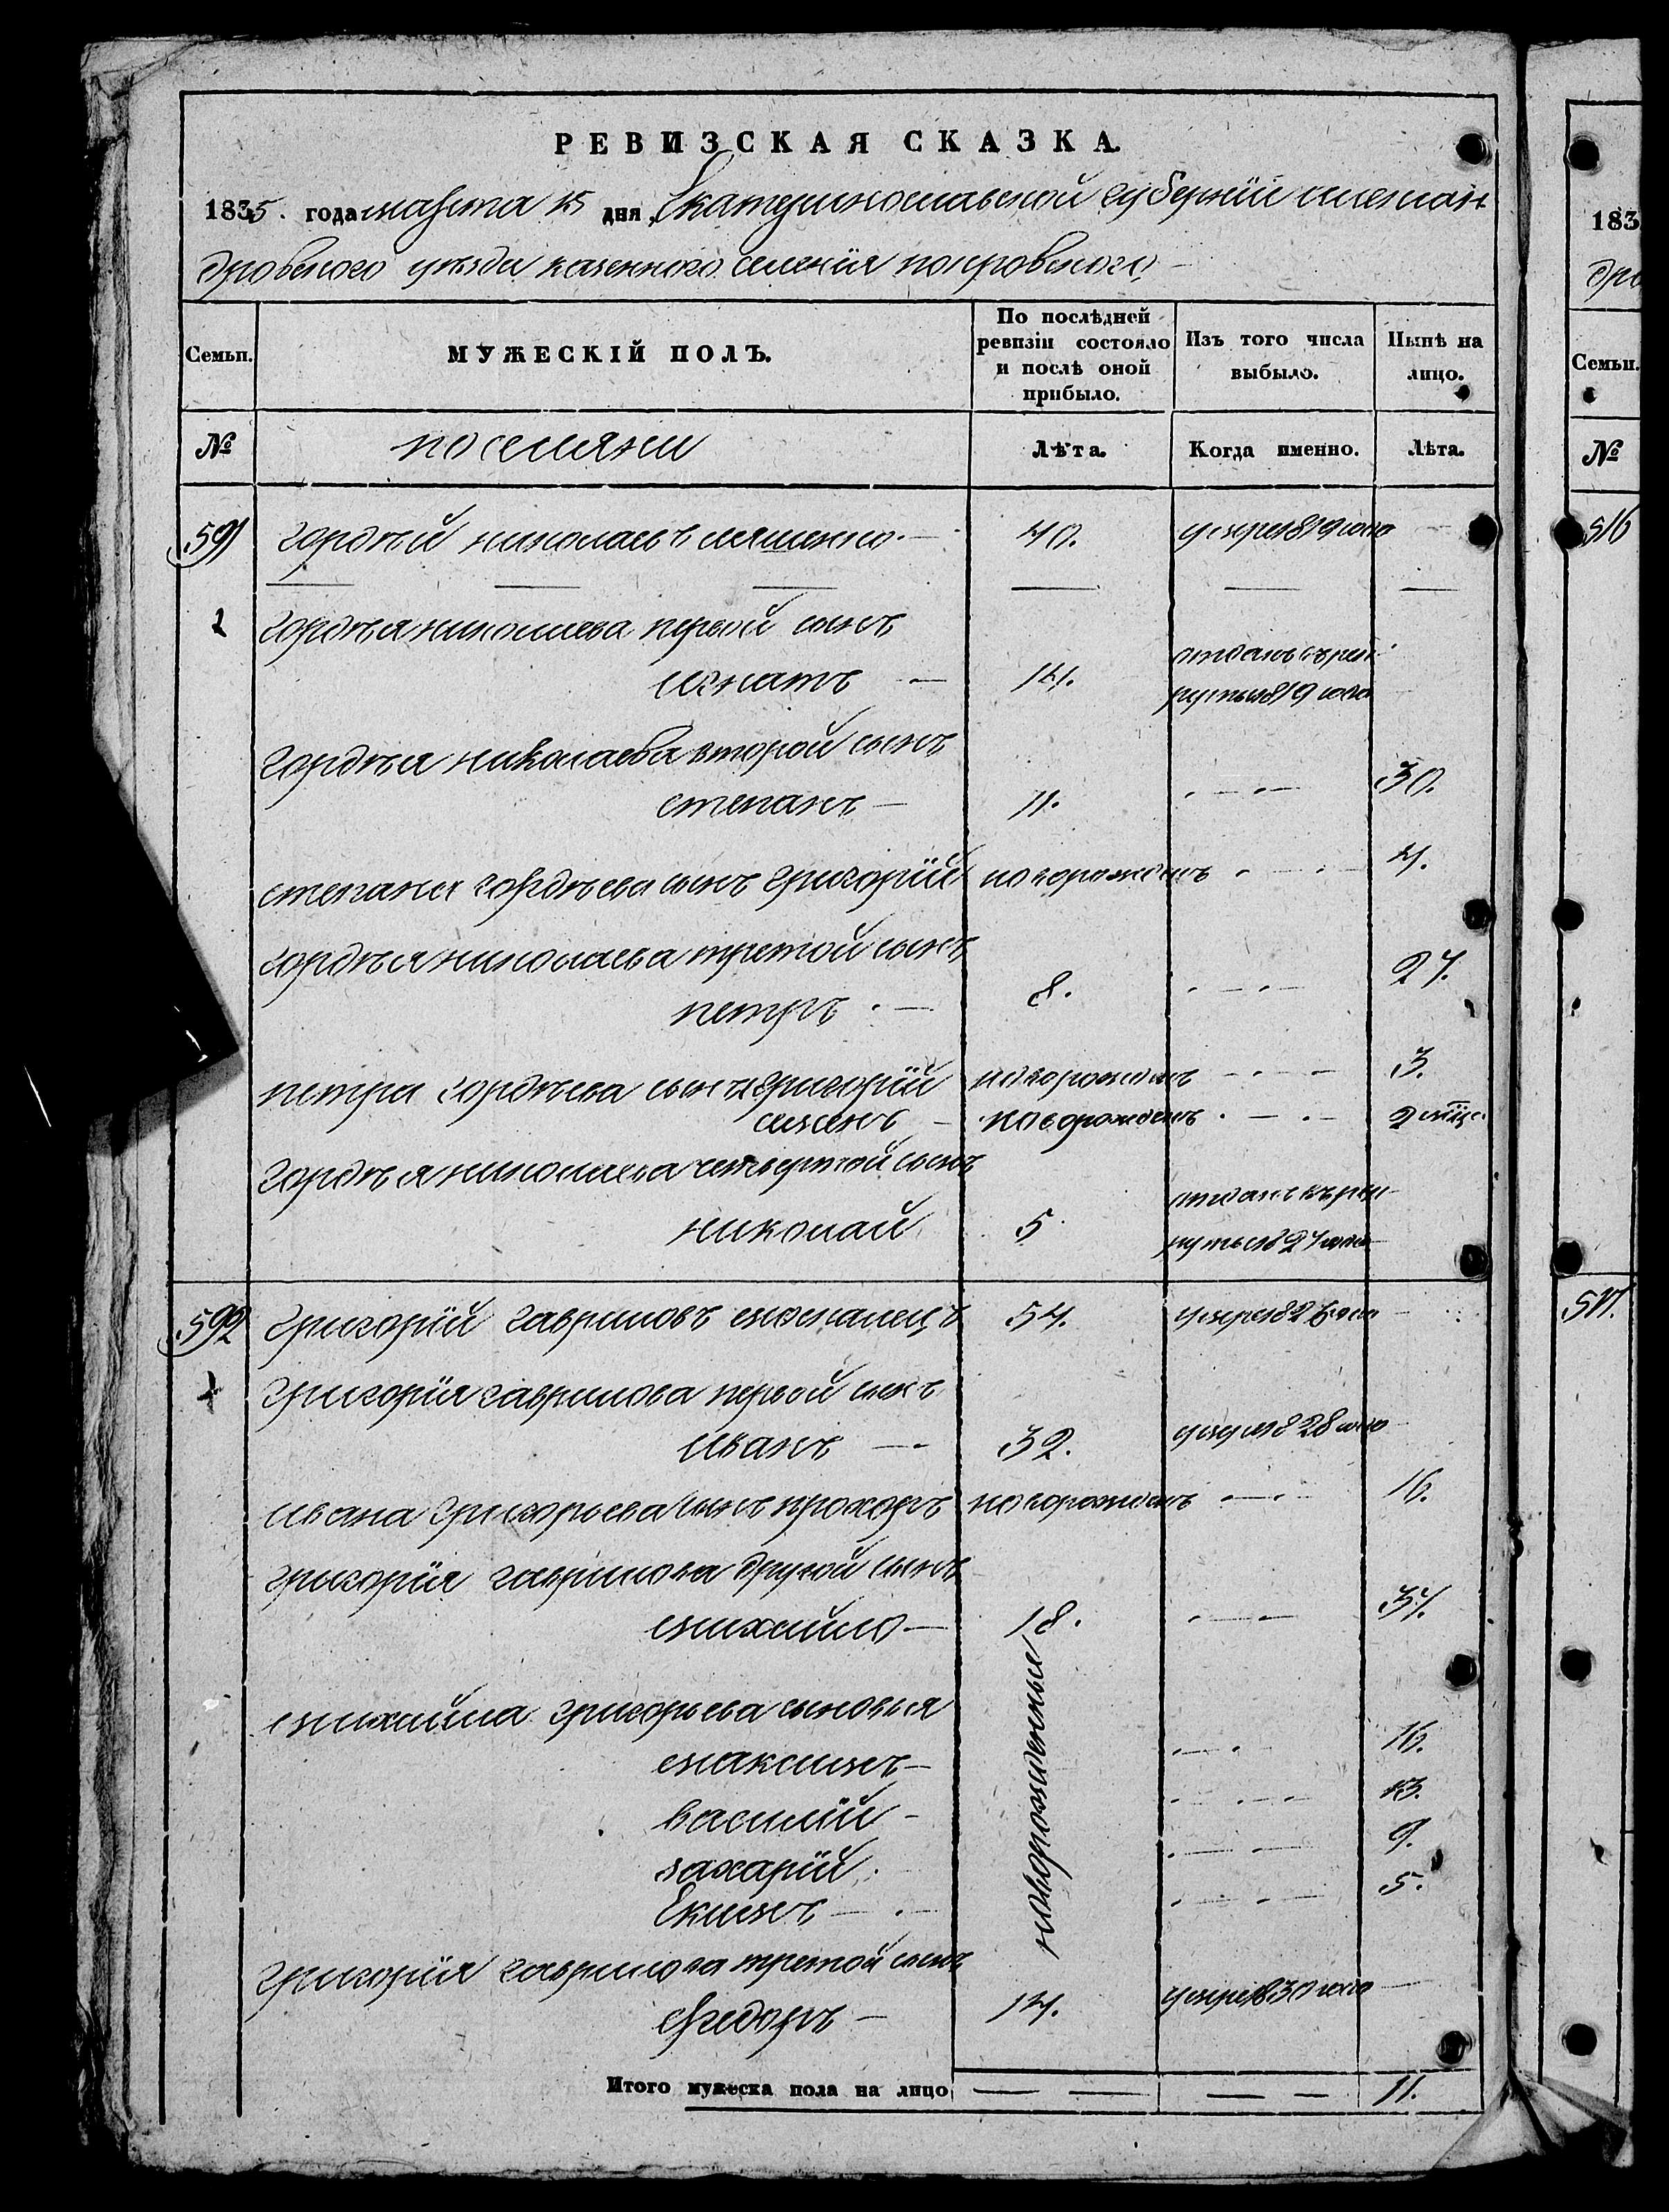 РЕВИЗСКАЯ СКАЗКА.
1835. года марта 15 дня, Екатеринославской губернїи александ
дровского уѣзда казенного селенїя покровского
Семьи. МУЖЕСКІЙ ПОЛЪ. По послѣдней ревизіи состояло и послѣ оной прибыло. Изъ того числа выбыло. Нынѣ на лицо.
№ поселяни Лѣта. Когда именно. Лѣта.
591 гордѣй николаевъ ляшенко. 40. умре 1819 года
2 гордѣя николаева первой сынъ
игнатъ 14. отданъ в рек
руты 1819 года
гордѣя николаева второй сынъ
степанъ 11. 30.
степана гордѣева сынъ григорїй новорожденъ 4.
гордѣя николаева третой сынъ
петръ 8. 27.
петра гордѣева сыны григорїй новорожденъ 3.
семенъ новорожденъ 2 мѣс.
гордѣя николаева четвертой сынъ
николай 5. отданъ в рек
руты 1827 года
592 григорїй гавриловъ 54. умре 1826 года
григорїя гаврилова первой сынъ
иванъ 32. умре 1828 года
ивана григорьева сынъ прохоръ новорожденъ 16.
григорїя гаврилова другой сынъ
михайло 18. 37.
михайла григорьева сыновья новорожденные
максимъ 16.
василїй 13.
захарїй 9.
Екимъ 5.
григорїя гаврилова третой сынъ
федоръ 14. умре 1830 года
Итого мужеска пола на лицо 11.
183
дро
Семьи.
№
516
517.